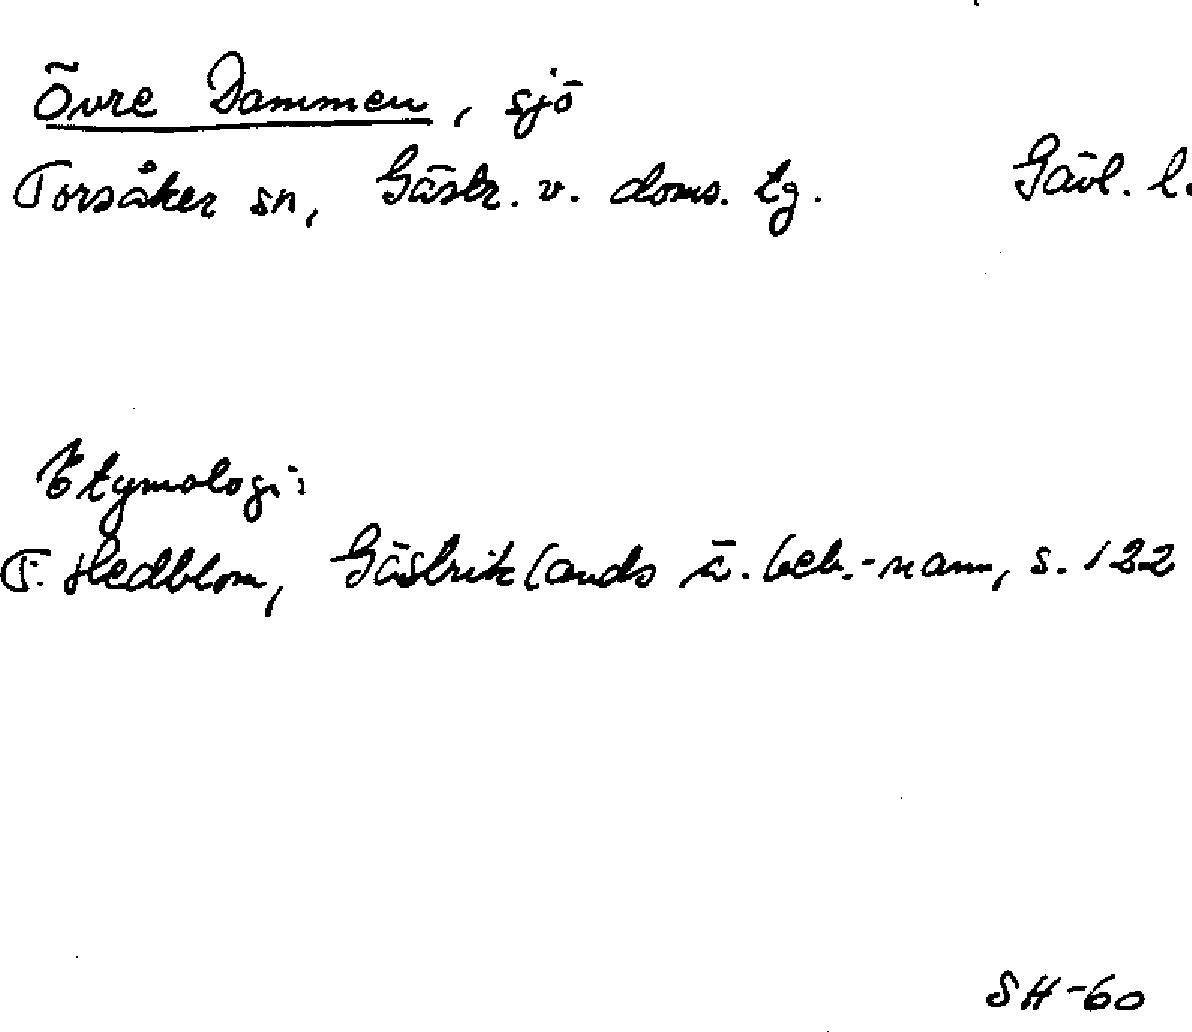 Övre Dammen, sjö
Torsåker sn, Gästr. v. doms. tg. Gävl. l.
Etymologi:
F. Hedblom, Gästriklands ä. beb.-namn, s. 122
SH-60